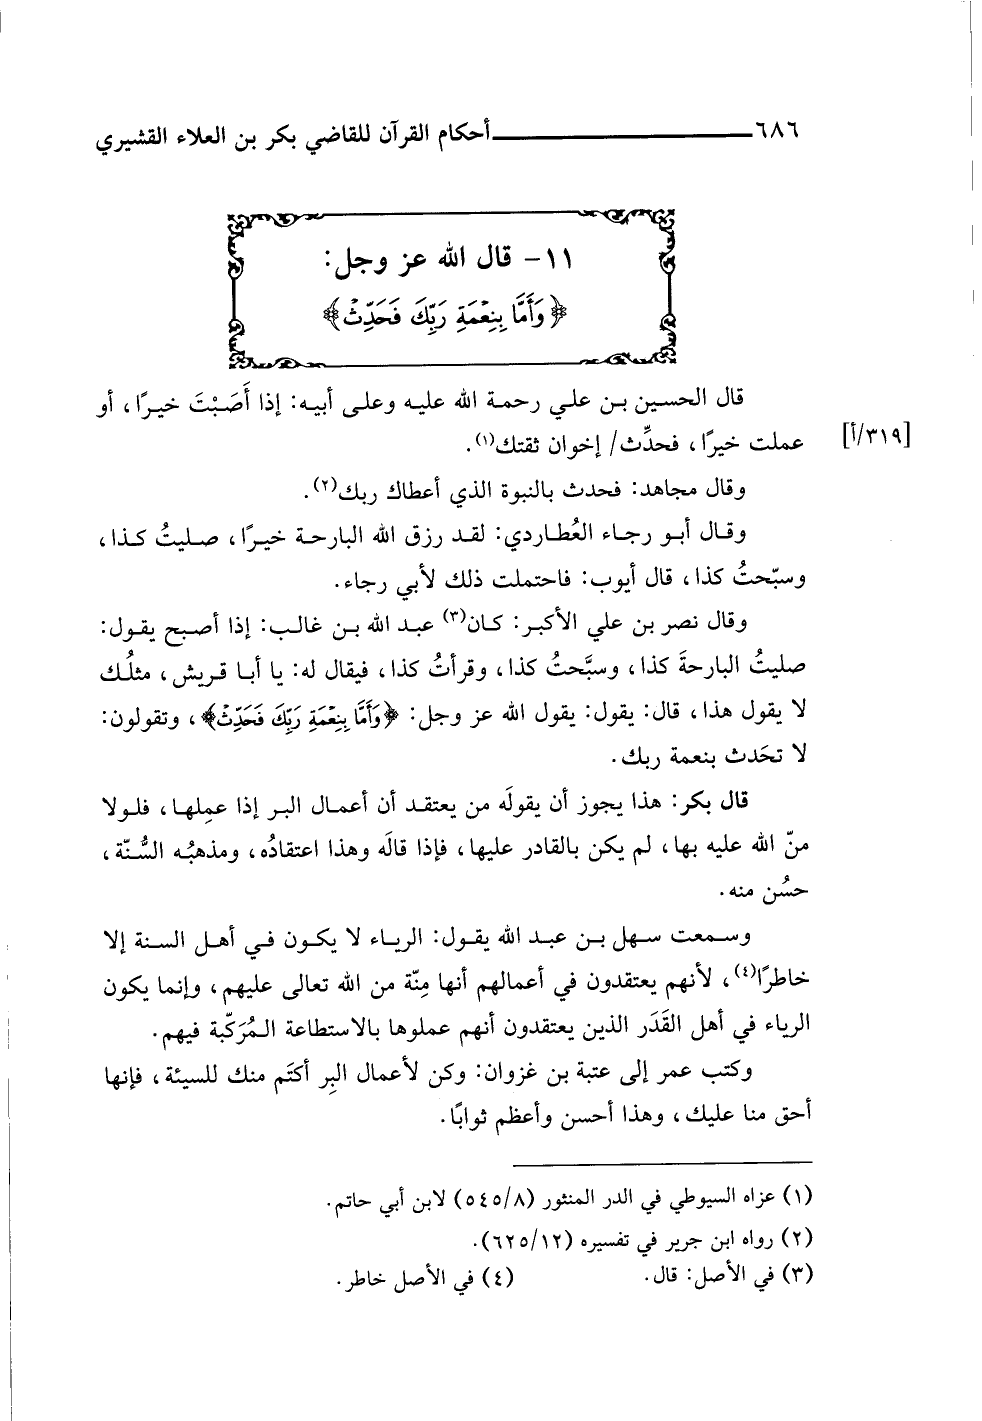 ٦٨٦ أحكام القرآن للقاضي بكر بن العلاء القشيري
١١- قال الله عز وجل:
﴿وَأَمَّا بِنِعْمَةِ رَبِّكَ فَحَدِّثْ﴾
قال الحسين بن علي رحمة الله عليه وعلى أبيه: إذا أَصَبْتَ خيرًا، أو
عملت خيرًا، فحدِّث/ إخوان ثقتك(١).
[٣١٩/أ]
وقال مجاهد: فحدث بالنبوة الذي أعطاك ربك(٢).
وقال أبو رجاء العُطاردي: لقد رزق الله البارحة خيرًا، صليتُ كذا،
وسبّحتُ كذا، قال أيوب: فاحتملت ذلك لأبي رجاء.
وقال نصر بن علي الأكبر: كان(٣) عبد الله بن غالب: إذا أصبح يقول:
صليتُ البارحةَ كذا، وسبَّحتُ كذا، وقرأتُ كذا، فيقال له: يا أبا قريش، مثلُك
لا يقول هذا، قال: يقول: يقول الله عز وجل: ﴿وَأَمَّا بِنِعْمَةِ رَبِّكَ فَحَدِّثْ﴾، وتقولون:
لا تحَدث بنعمة ربك.
قال بكر: هذا يجوز أن يقولَه من يعتقد أن أعمال البر إذا عمِلها، فلولا
منّ الله عليه بها، لم يكن بالقادر عليها، فإذا قالَه وهذا اعتقادُه، ومذهبُه السُّنّة،
حسُن منه.
وسمعت سهل بن عبد الله يقول: الرياء لا يكون في أهل السنة إلا
خاطرًا(٤)، لأنهم يعتقدون في أعمالهم أنها مِنّة من الله تعالى عليهم، وإنما يكون
الرياء في أهل القَدَر الذين يعتقدون أنهم عملوها بالاستطاعة المُرَكّبة فيهم.
وكتب عمر إلى عتبة بن غزوان: وكن لأعمال البِر أكتَم منك للسيئة، فإنها
أحق منا عليك، وهذا أحسن وأعظم ثوابًا.
(١) عزاه السيوطي في الدر المنثور (٥٤٥/٨) لابن أبي حاتم.
(٢) رواه ابن جرير في تفسيره (٦٢٥/١٢).
(٣) في الأصل: قال. (٤) في الأصل خاطر.